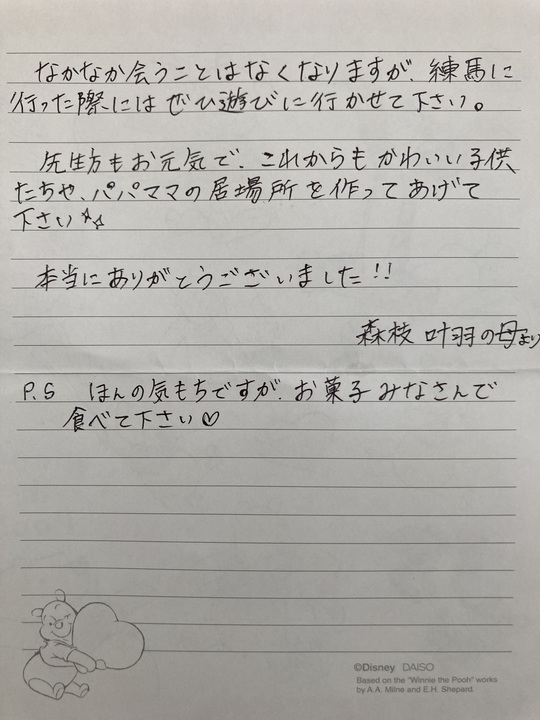 なかなか会うことはなくなりますが、練馬に
行った際にはぜひ遊びに行かせて下さい。
先生方もお元気で、これからもかわいい子供
たちや、パパママの居場所を作ってあげて
下さい☆☆
本当にありがとうございました!!
森枝 叶羽の母より
P.S ほんの気もちですが、お菓子みなさんで
食べて下さい♡
©Disney DAISO
Based on the "Winnie the Pooh" works
by A.A. Milne and E.H. Shepard.